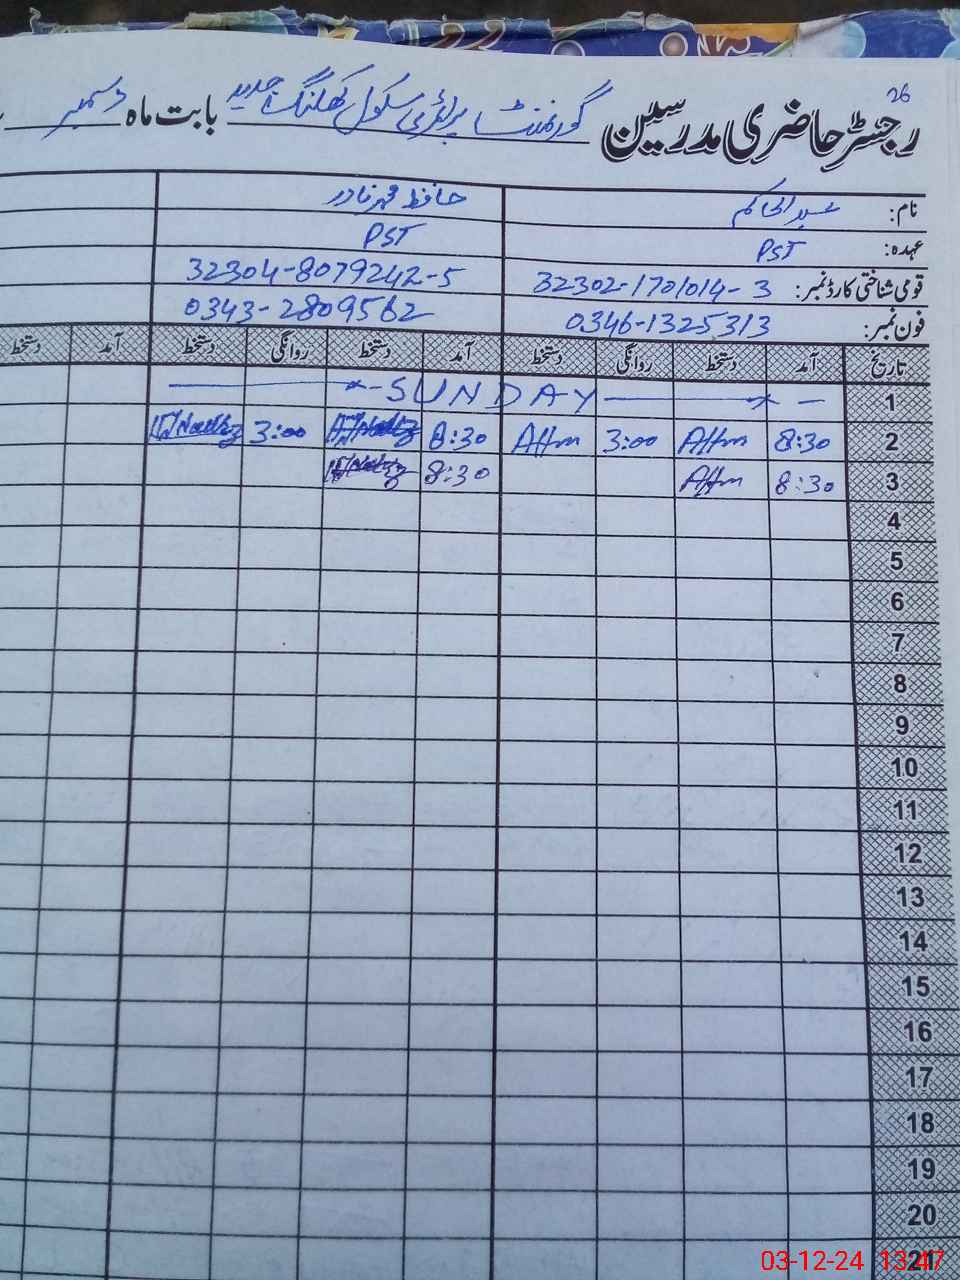 26
رجسٹر حاضری مدرسین گورنمنٹ پرائمری سکول کھلنگ جدید بابت ماہ دسمبر
نام: عبدالحاکم حافظ محمد نادر
عہدہ: PST PST
قومی شناختی کارڈ نمبر: 32302-1701014-3 32304-8079242-5
فون نمبر: 0346-1325313 0343-2809562
تاریخ آمد دستخط روانگی دستخط آمد دستخط روانگی دستخط آمد دستخط
1 SUNDAY
2 8:30 3:00 8:30 3:00
3 8:30 8:30
4
5
6
7
8
9
10
11
12
13
14
15
16
17
18
19
20
21
03-12-24 13:47